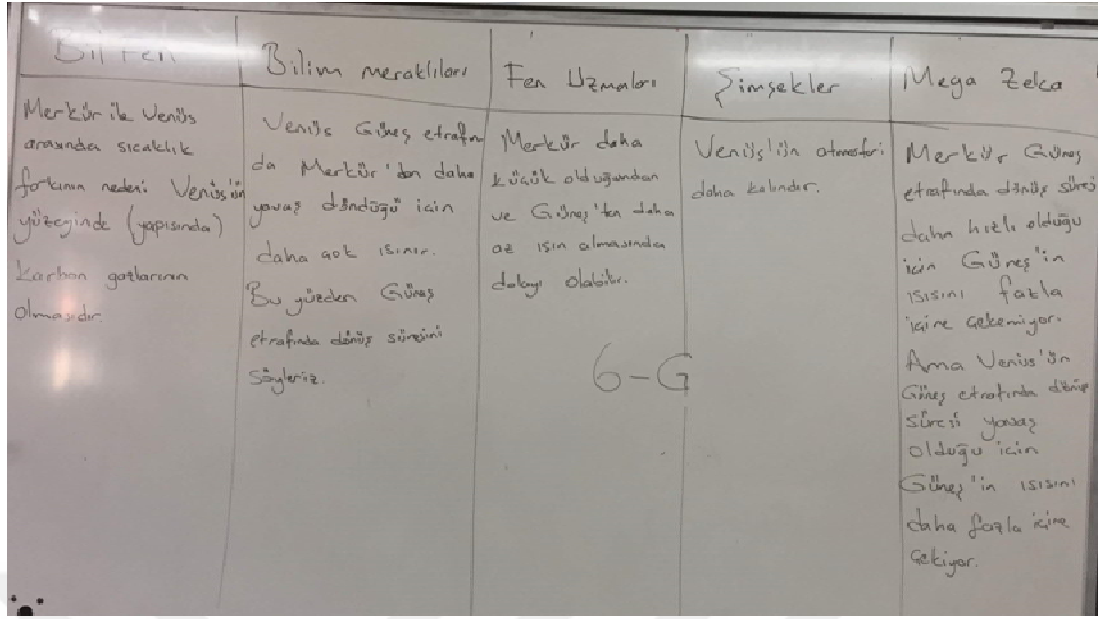 Bil Fen
Merkür ile Venüs
arasında sıcaklık
farkının nedeni Venüs'ün
yüzeyinde (yapısında)
Karbon gazlarının
olmasıdır.
Bilim meraklıları
Venüs Güneş etrafın
da Merkür'den daha
yavaş döndüğü için
daha çok ısınır.
Bu yüzden Güneş
etrafında dönüş süresini
söyleriz.
Fen Uzmaları
Merkür daha
küçük olduğundan
ve Güneş'ten daha
az ışın almasından
dolayı olabilir.
6-G
Şimşekler
Venüs'ün atmosferi
daha kalındır.
Mega Zeka
Merkür Güneş
etrafında dönüş süresi
daha hızlı olduğu
için Güneş'in
ısısını fazla
içine çekemiyor.
Ama Venüs'ün
Güneş etrafında dönüş
süresi yavaş
olduğu için
Güneş'in ısısını
daha fazla içine
çekiyor.